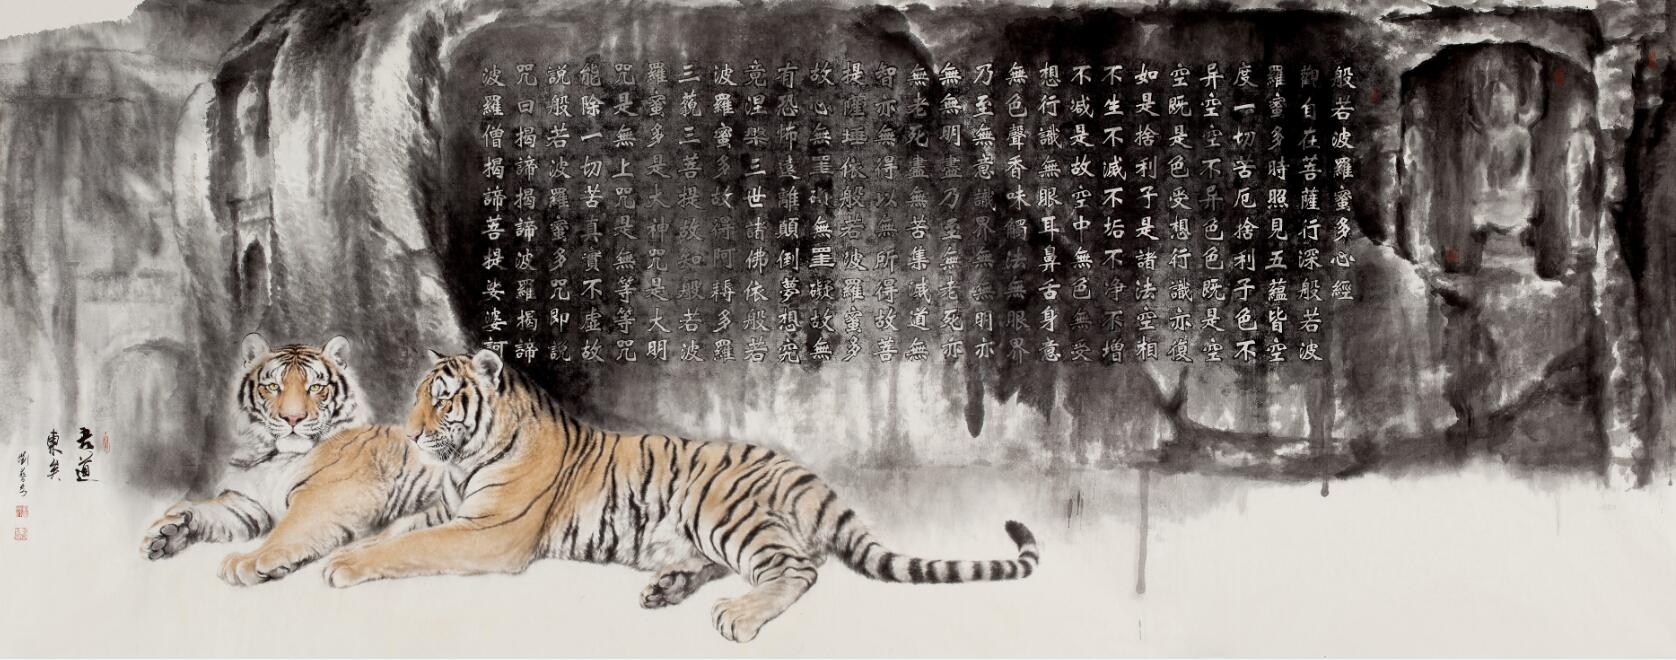 般若波羅蜜多心經
觀自在菩薩行深般若波
羅蜜多時照見五蘊皆空
度一切苦厄捨利子色不
异空空不异色色既是空
空既是色受想行識亦復
如是捨利子是諸法空相
不生不滅不垢不净不增
不減是故空中無色無受
想行識無眼耳鼻舌身意
無色聲香味觸法無眼界
乃至無意識界無無明亦
無無明盡乃至無老死亦
無老死盡無苦集滅道無
智亦無得以無所得故菩
提薩埵依般若波羅蜜多
故心無罣礙無罣礙故無
有恐怖遠離顛倒夢想究
竟涅槃三世諸佛依般若
波羅蜜多故得阿耨多羅
三藐三菩提故知般若波
羅蜜多是大神咒是大明
咒是無上咒是無等等咒
能除一切苦真實不虚故
說般若波羅蜜多咒即説
咒曰揭諦揭諦波羅揭諦
波羅僧揭諦菩提娑婆訶
吾道
東矣